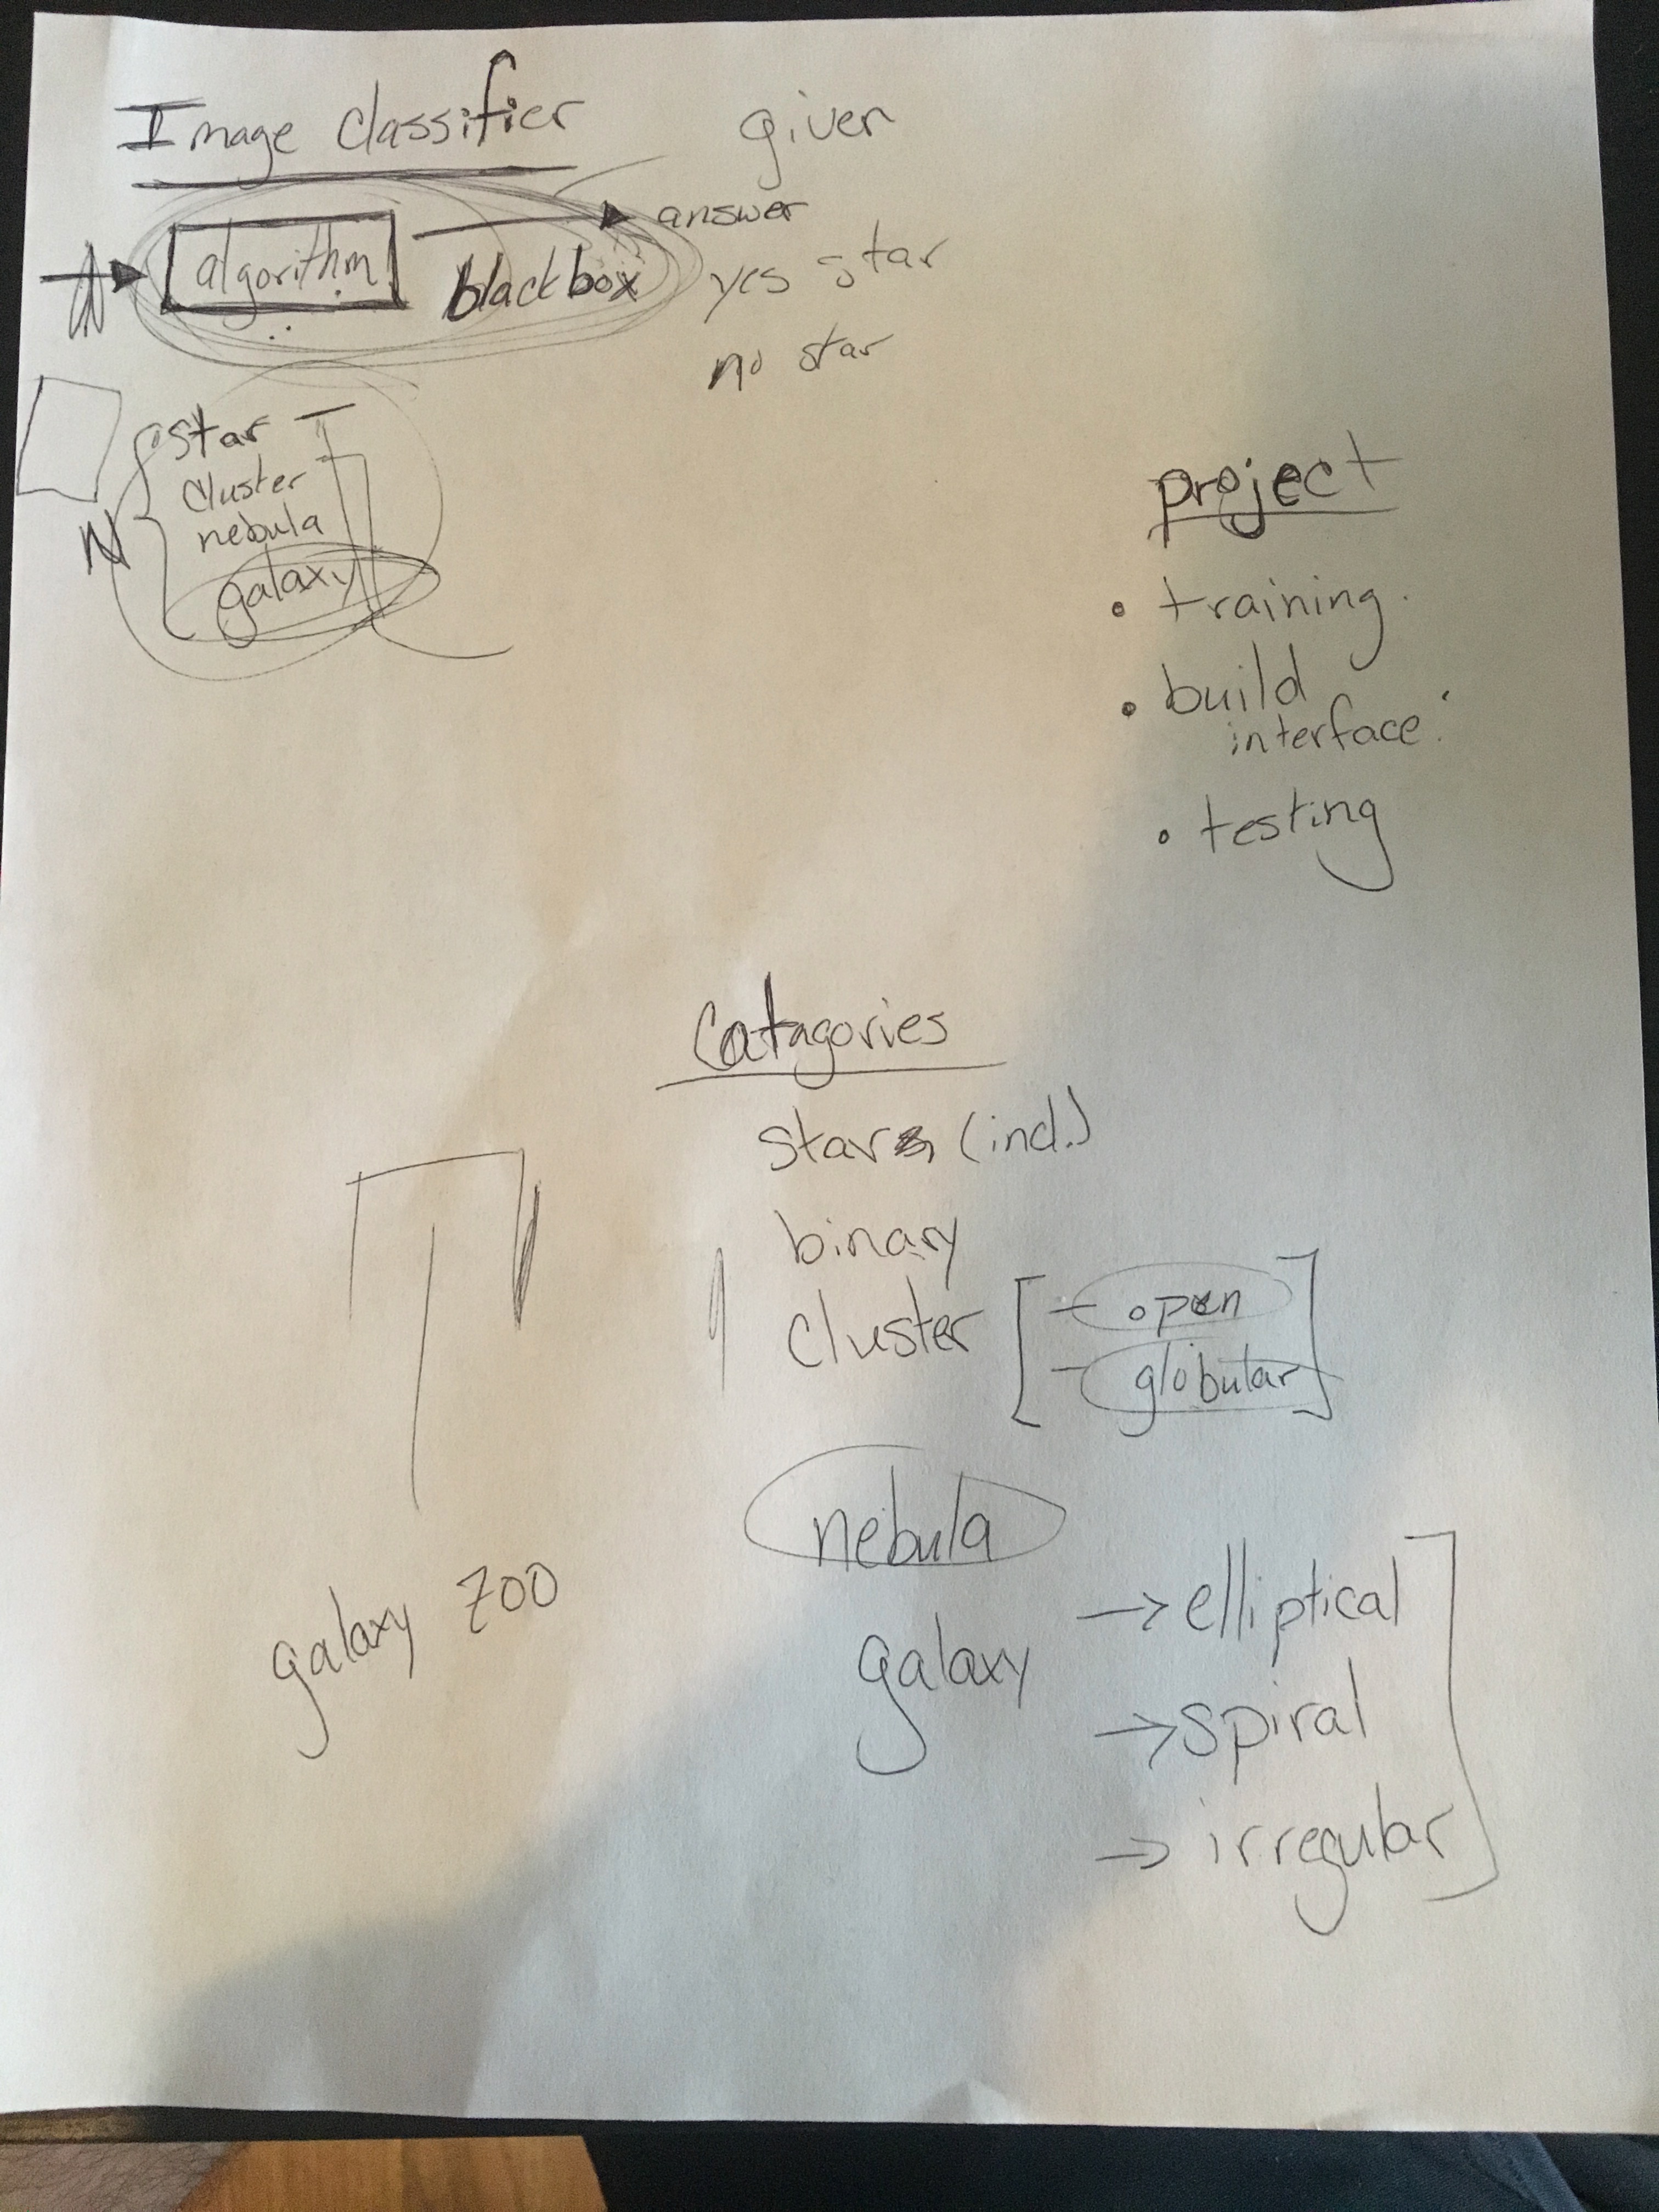 Image classifier
given
answer
algorithm
blackbox
yes star
no star
star
cluster
nebula
galaxy
N
project
• training
• build
interface
• testing
Catagories
star (ind.)
binary
cluster [ - open
- globular ]
nebula
galaxy → elliptical
→ spiral
→ irregular
galaxy zoo